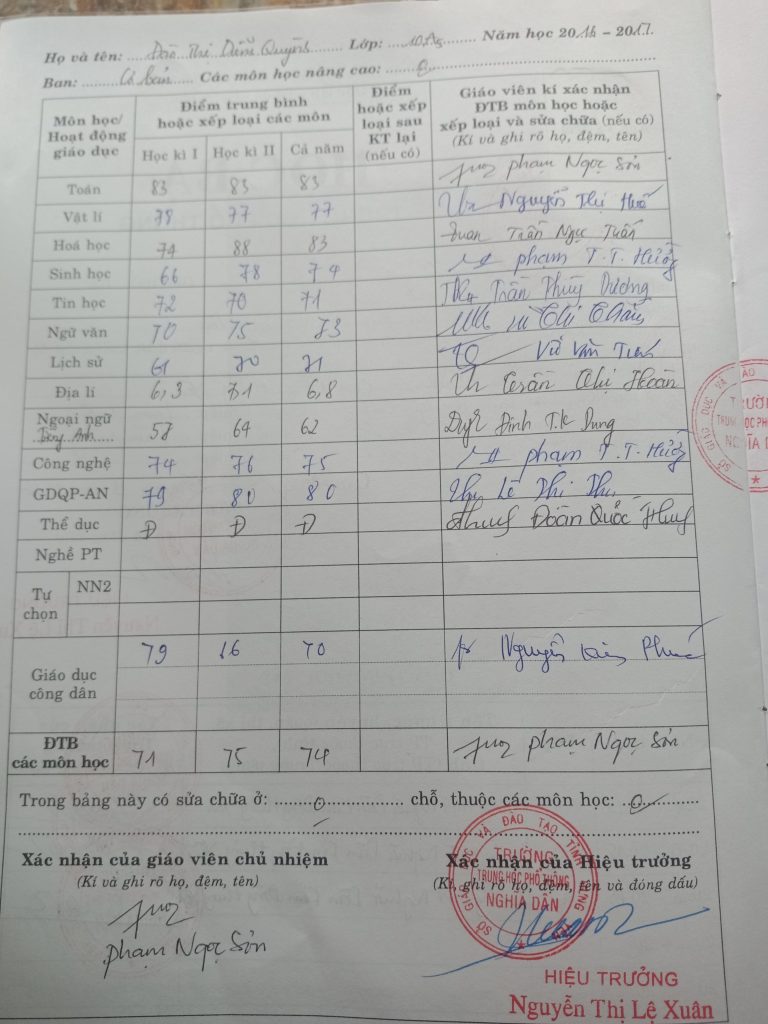 Họ và tên: Đào Thị Diễm Quỳnh Lớp: 10A5 Năm học 2016 - 2017.
Ban: Cơ bản Các môn học nâng cao: 0
Môn học/ Hoạt động giáo dục
Điểm trung bình hoặc xếp loại các môn
Học kì I Học kì II Cả năm
Điểm hoặc xếp loại sau KT lại (nếu có)
Giáo viên kí xác nhận ĐTB môn học hoặc xếp loại và sửa chữa (nếu có)
(Kí và ghi rõ họ, đệm, tên)
Toán 83 83 83 Phạm Ngọc Sơn
Vật lí 78 77 77 Nguyễn Thị Huế
Hoá học 74 88 83 Trần Ngọc Tuấn
Sinh học 66 78 74 Phạm T.T. Hường
Tin học 72 70 71 Trần Thùy Dương
Ngữ văn 70 75 73
Lịch sử 61 70 71 Vũ Văn
Địa lí 6,3 71 6,8 Trần Thị Hoàn
Ngoại ngữ Tiếng Anh 57 64 62 Đinh T.K Dung
Công nghệ 74 76 75 Phạm T.T. Hường
GDQP-AN 79 80 80 Lê Thị Thu
Thể dục Đ Đ Đ Đoàn Quốc Huy
Nghề PT
Tự chọn
NN2
Giáo dục công dân 79 66 70 Nguyễn Kim
ĐTB các môn học 71 75 74 Phạm Ngọc Sơn
Trong bảng này có sửa chữa ở: 0 chỗ, thuộc các môn học: 0
Xác nhận của giáo viên chủ nhiệm
(Kí và ghi rõ họ, đệm, tên)
Phạm Ngọc Sơn
Xác nhận của Hiệu trưởng
(Kí, ghi rõ họ, đệm, tên và đóng dấu)
TRƯỜNG
TRUNG HỌC PHỔ THÔNG
NGHĨA DÂN
HIỆU TRƯỞNG
Nguyễn Thị Lệ Xuân